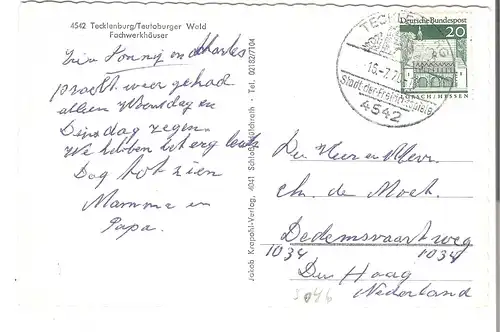 4542 Tecklenburg/Teutoburger Wald
Fachwerkhäuser
Conny en Charles
weer gehad
alleen Woensdag en
Dinsdag regen.
We hebben het erg leuk
Dag tot ziens
Mamma en
Papa.
Jakob Krapohl-Verlag, 4041 Schloß · Tel. 02182/7104
TECKLE
16.-7.7
Stadt der Freilichtspiele
4542
Deutsche Bundespost
20
LORSCH/HESSEN
Den Heer en Mevr.
Ch. de Moet.
Dedemsvaartweg
1034 1034
Den Haag
Nederland